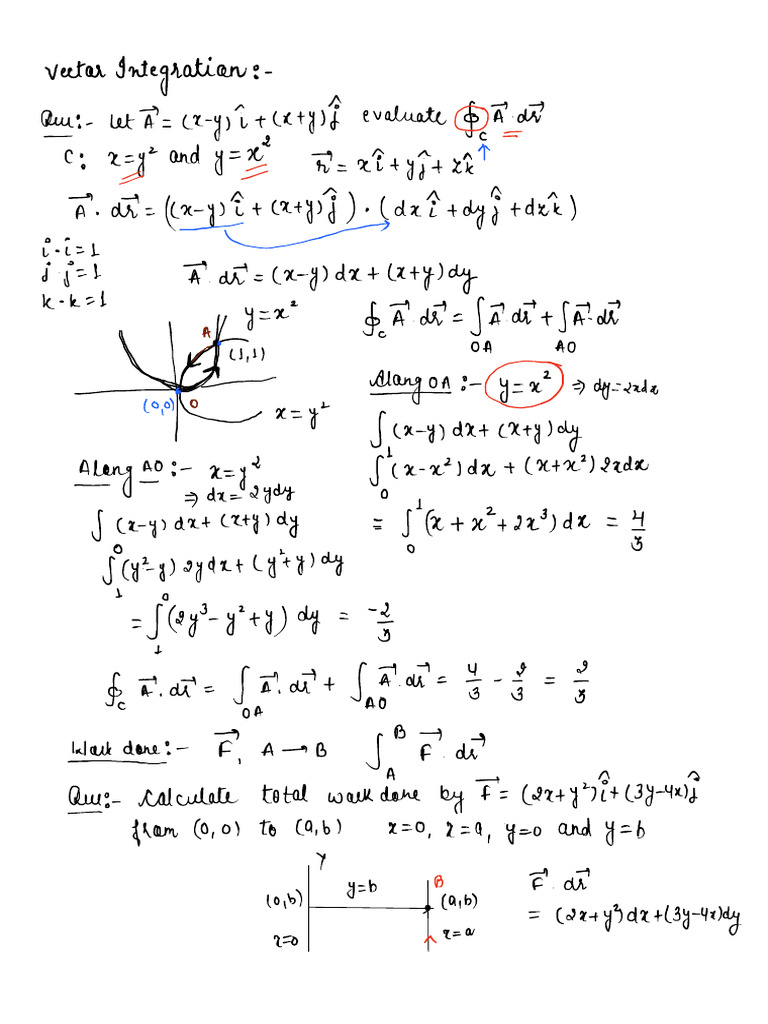 Vector Integration:-
Que:- Let A⃗ = (x-y)î + (x+y)ĵ evaluate ∮_C A⃗·dr⃗
C: x=y² and y=x² r⃗ = xî+yĵ+zk̂
A⃗·dr⃗ = ((x-y)î + (x+y)ĵ)·(dxî+dyĵ+dzk̂)
i·i=1
j·j=1
k·k=1
A⃗·dr⃗ = (x-y)dx+(x+y)dy
y=x²
A
(1,1)
(0,0) O
x=y²
∮_C A⃗·dr⃗ = ∫_OA A⃗·dr⃗ + ∫_AO A⃗·dr⃗
Along OA:- y=x² ⇒ dy=2xdx
∫(x-y)dx+(x+y)dy
∫₀¹(x-x²)dx+(x+x²)2xdx
= ∫₀¹(x+x²+2x³)dx = 4/3
Along AO:- x=y²
⇒ dx=2ydy
∫(x-y)dx+(x+y)dy
∫₁⁰(y²-y)2ydx+(y²+y)dy
= ∫₁⁰(2y³-y²+y)dy = -2/3
∮_C A⃗·dr⃗ = ∫_OA A⃗·dr⃗ + ∫_AO A⃗·dr⃗ = 4/3 - 2/3 = 2/3
Work done:- F⃗, A→B ∫_A^B F⃗·dr⃗
Que:- Calculate total work done by F⃗=(2x+y²)î+(3y-4x)ĵ
from (0,0) to (a,b) x=0, x=a, y=0 and y=b
Y
(0,b) y=b B (a,b)
x=0 x=a
F⃗·dr⃗
= (2x+y²)dx+(3y-4x)dy